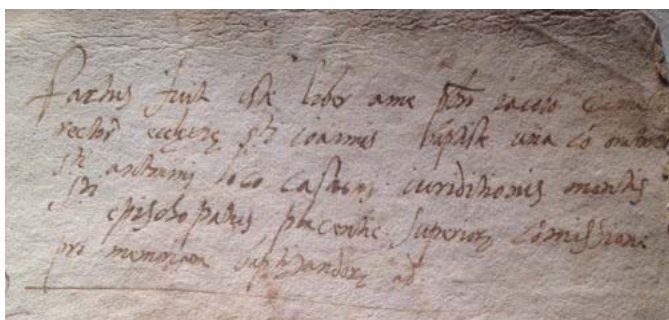 factus fuit iste liber a me pbro iacobo
rector ecclesie sti ioannis baptiste una cō
sti antonini loco iuriditionis montis
epischopatus placentie superiorȝ comissione
pro memoria baptizandorȝ